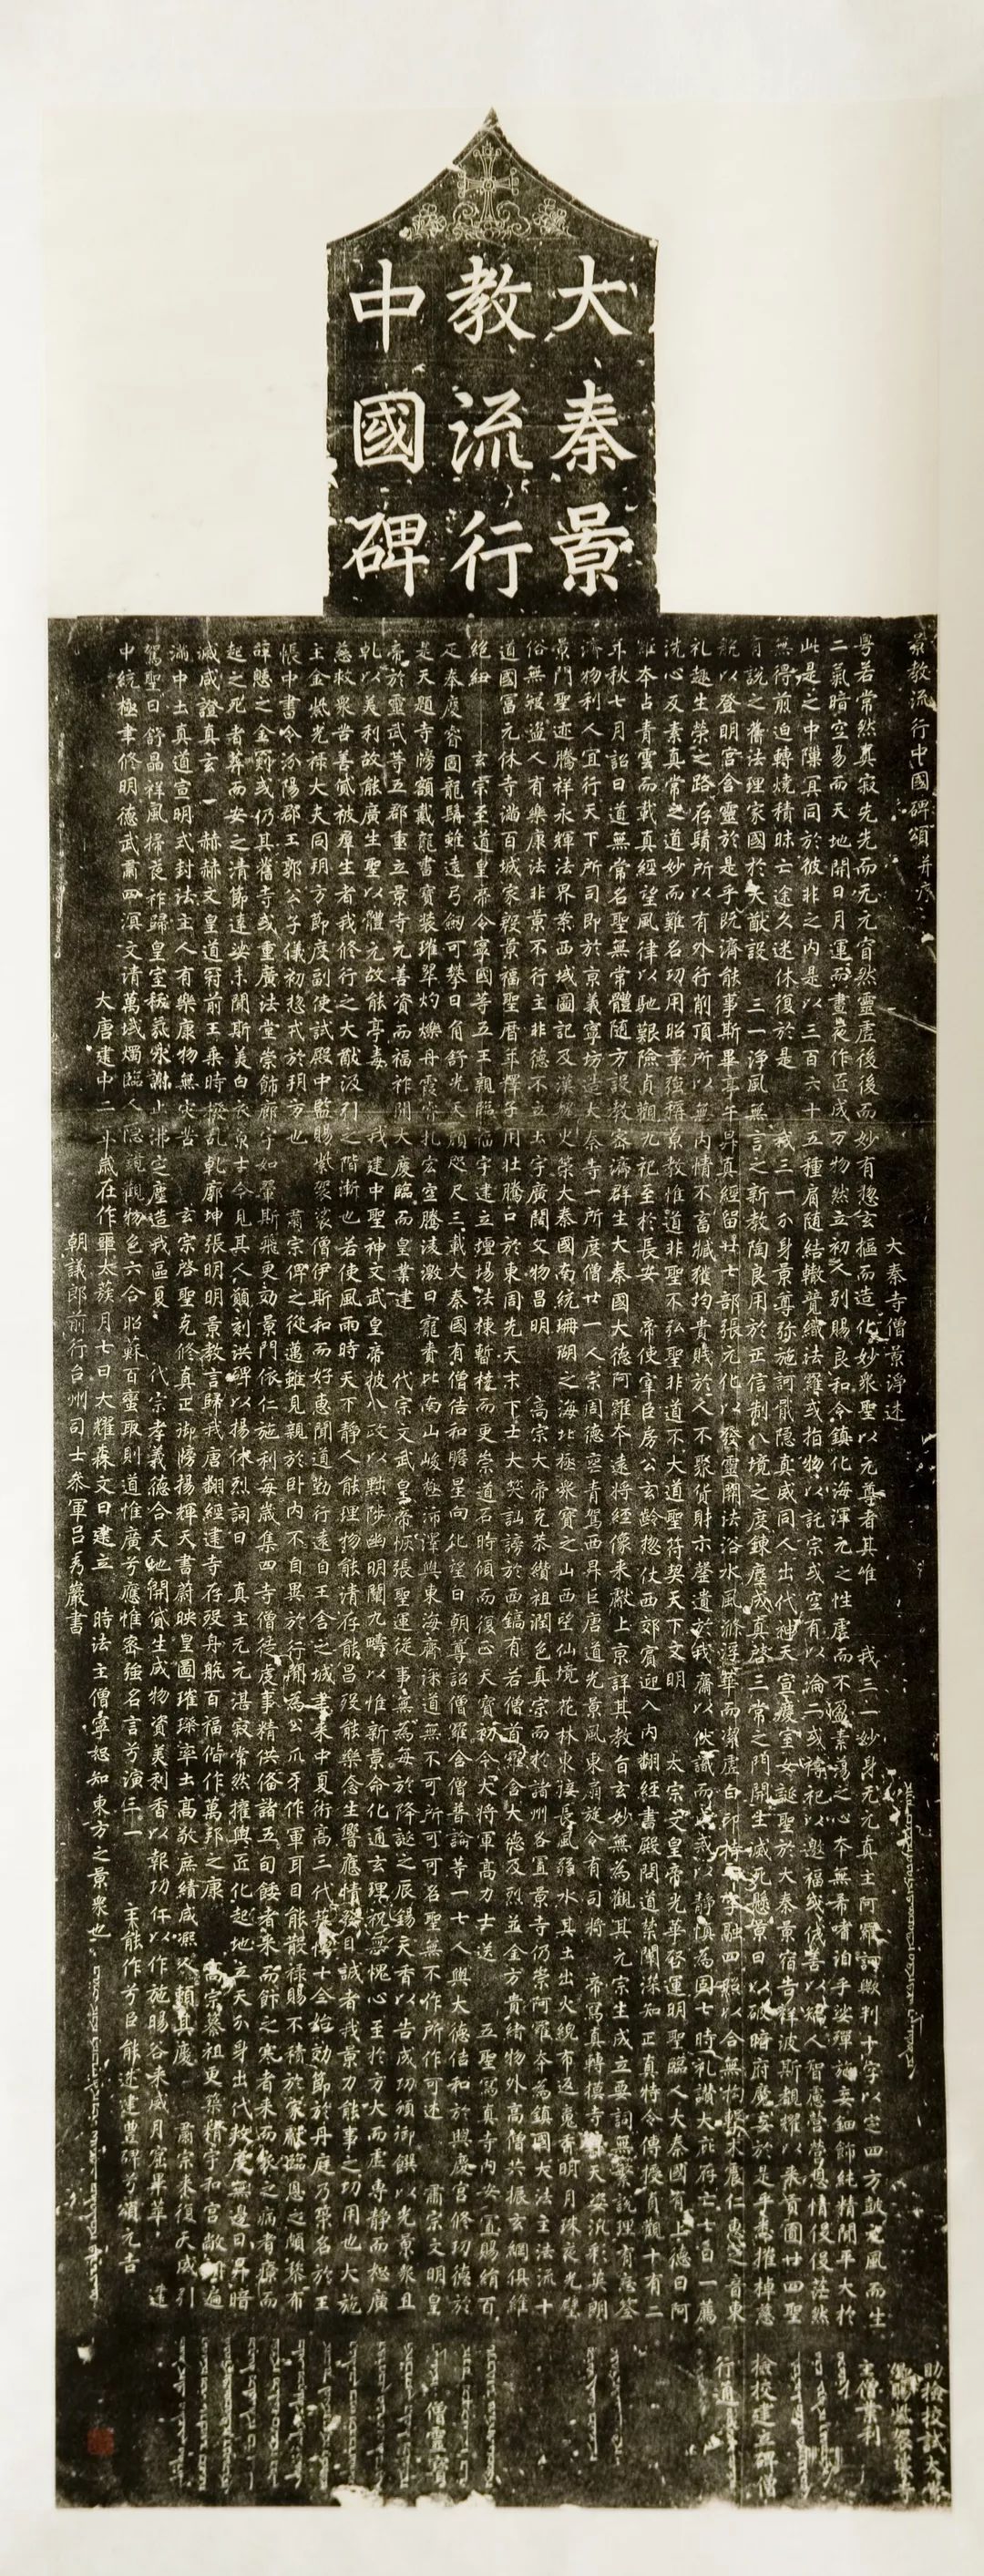 大秦景
教流行
中國碑
景教流行中國碑頌并序
大秦寺僧景淨述
粵若常然真寂先先而无元窅然靈虛後後而妙有惣玄樞而造化妙衆聖以元尊者其唯 我三一妙身无元真主阿羅訶歟判十字以定四方鼓元風而生
二氣暗空易而天地開日月運而晝夜作匠成万物然立初人別賜良和令鎮化海渾元之性虛而不盈素蕩之心夲無希嗜洎乎娑殫施妄鈿飾純精閒平大於
此是之中隟冥同於彼非之內是以三百六十五種肩隨結轍競織法羅或指物以託宗或空有以淪二或禱祀以邀福或伐善以矯人智慮營營恩情役役茫然
無得煎迫轉燒積昧亡途久迷休復於是 我三一分身景尊弥施訶戢隱真威同人出代神天宣慶室女誕聖於大秦景宿告祥波斯覩耀以來貢圓廿四聖
有說之舊法理家國於大猷設 三一淨風無言之新教陶良用於正信制八境之度鍊塵成真啓三常之門開生滅死懸景日以破暗府魔妄於是乎悉摧棹慈
航以登明宮含靈於是乎既濟能事斯畢亭午昇真經留廿七部張元化以發靈關法浴水風滌浮華而潔虛白印持十字融四照以合無拘擊木震仁惠之音東
礼趣生榮之路存鬚所以有外行削頂所以無內情不畜臧獲均貴賤於人不聚貨財示罄遺於我齋以伏識而成戒以靜慎為固七時礼讃大庇存亡七日一薦
洗心反素真常之道妙而難名功用昭彰強稱景教惟道非聖不弘聖非道不大道聖符契天下文明 太宗文皇帝光華啓運明聖臨人大秦國有上德曰阿
羅夲占青雲而載真經望風律以馳艱險貞觀九祀至於長安 帝使宰臣房公玄齡惣仗西郊賓迎入內翻經書殿問道禁闈深知正真特令傳授貞觀十有二
年秋七月 詔曰道無常名聖無常體隨方設教密濟群生大秦國大德阿羅夲遠將經像來獻上京詳其教旨玄妙無為觀其元宗生成立要詞無繁說理有忘筌
濟物利人宜行天下所司即於京義寧坊造大秦寺一所度僧廿一人宗周德喪青駕西昇巨唐道光景風東扇旋令有司將 帝寫真轉摸寺壁天姿汎彩英朗
景門聖迹騰祥永輝法界案西域圖記及漢魏史策大秦國南統珊瑚之海北極衆寶之山西望仙境花林東接長風弱水其土出火綄布返魂香明月珠夜光璧
俗無寇盜人有樂康法非景不行主非德不立土宇廣闊文物昌明 高宗大帝克恭纘祖潤色真宗而於諸州各置景寺仍崇阿羅夲為鎮國大法主法流十
道國富元休寺滿百城家殷景福聖曆年釋子用壯騰口於東周先天末下士大笑訕謗於西鎬有若僧首羅含大德及烈並金方貴緒物外高僧共振玄網俱維
絕紐 玄宗至道皇帝令寧國等五王親臨福宇建立壇場法棟暫橈而更崇道石時傾而復正天寶初令大將軍高力士送 五聖寫真寺內安置賜絹百
疋奉慶睿圖龍髯雖遠弓劒可攀日角舒光天顏咫尺三載大秦國有僧佶和瞻星向化望日朝尊詔僧羅含僧普論等一七人與大德佶和於興慶宮修功德於
是天題寺牓額戴龍書寶裝璀翠灼爍丹霞睿札宏空騰凌激日寵賚比南山峻極沛澤與東海齊深道無不可所可可名聖無不作所作可述 肅宗文明皇
帝於靈武等五郡重立景寺元善資而福祚開大慶臨而皇業建 代宗文武皇帝恢張聖運從事無為每於降誕之辰錫天香以告成功頒御饌以光景衆且
乹以美利故能廣生聖以體元故能亭毒 我建中聖神文武皇帝披八政以黜陟幽明闡九疇以惟新景命化通玄理祝無愧心至於方大而虛專靜而恕廣
慈救衆苦善貸被羣生者我修行之大猷汲引之階漸也若使風雨時天下靜人能理物能清存能昌歿能樂念生響應情發目誠者我景力能事之功用也大施
主金紫光祿大夫同朔方節度副使試殿中監賜紫袈裟僧伊斯和而好惠聞道勤行遠自王舍之城聿來中夏術高三代藝博十全始効節於丹庭乃策名於王
帳中書令汾陽郡王郭公子儀初惣戎於朔方也 肅宗俾之從邁雖見親於卧內不自異於行間為公爪牙作軍耳目能散祿賜不積於家獻臨恩之頗黎布
辭憩之金罽或仍其舊寺或重廣法堂崇飾廊宇如翬斯飛更効景門依仁施利每歲集四寺僧徒虔事精供備諸五旬餧者來而飰之寒者來而衣之病者療而
起之死者葬而安之清節達娑未聞斯美白衣景士今見其人願刻洪碑以揚休烈詞曰 真主无元湛寂常然權輿匠化起地立天分身出代救度無邊日昇暗
滅咸證真玄 赫赫文皇道冠前王乘時撥亂乹廓坤張明明景教言歸我唐翻經建寺存歿舟航百福偕作萬邦之康 高宗纂祖更築精宇和宮敞朗遍
滿中土真道宣明式封法主人有樂康物無灾苦 玄宗啓聖克修真正御牓揚輝天書蔚映皇圖璀璨率土高敬庶績咸凞人賴其慶 肅宗來復天威引
駕聖日舒晶祥風掃夜祚歸皇室祅氛永謝止沸定塵造我區夏 代宗孝義德合天地開貸生成物資美利香以報功仁以作施暘谷來威月窟畢萃
中統極聿修明德武肅四溟文清萬域燭臨人隱鏡觀物色六合昭蘇百蠻取則道惟廣兮應惟密強名言兮演三一 主能作兮臣能述建豊碑兮頌元吉
大唐建中二年歲在作噩太蔟月七日大耀森文日建立 時法主僧寧恕知東方之景衆也
朝議郎前行台州司士叅軍呂秀巖書
助檢挍試太常
卿賜紫袈裟寺
主僧業利
檢挍建立碑僧
行通
僧靈寶